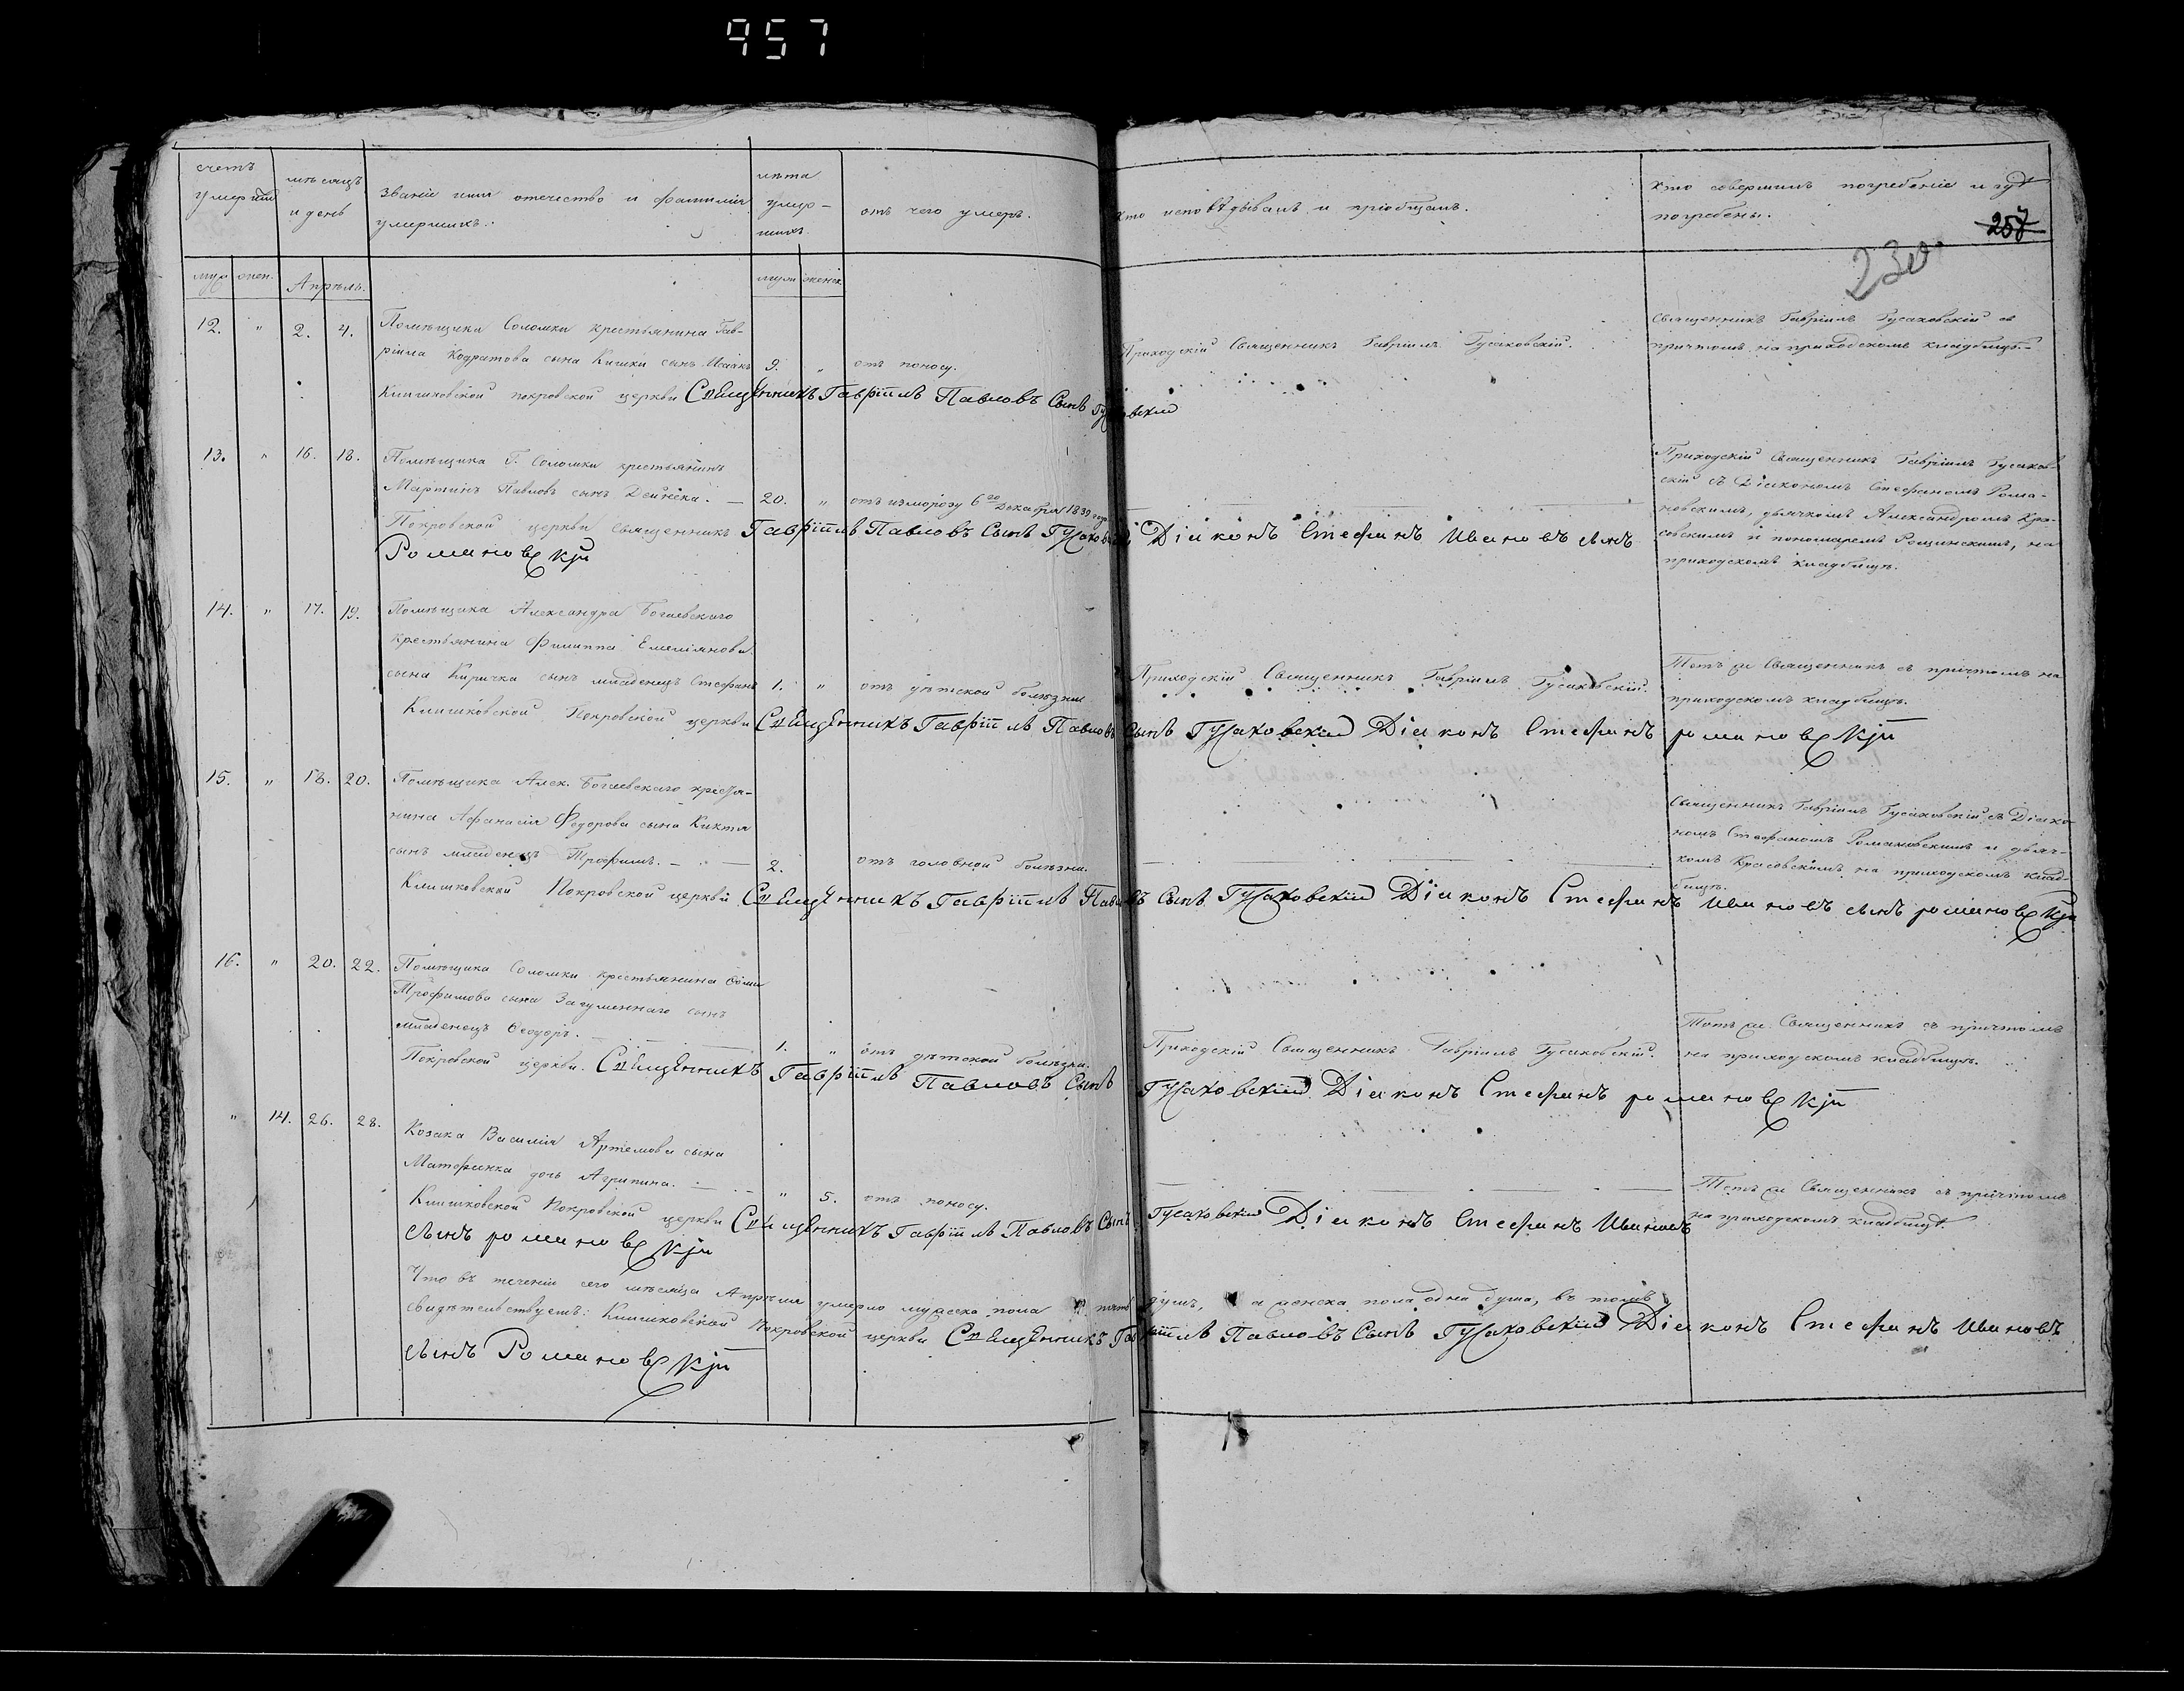 957
счетъ умершихъ
мѣсяцъ и день
званіе имя отечество и фамилія
умершихъ.
лѣта
умер-
шихъ.
отъ чего умеръ.
кто исповѣдывалъ и пріобщалъ.
кто совершилъ погребеніе и гдѣ
погребены.
257
230.
муж женс.
Апрѣль.
муж женск
12. " 2. 4. Помѣщика Соломки крестьянина Гав-
ріила Кодратова сына Кишки сынъ Исаакъ 9. " отъ поносу.
Приходскій Священникъ Гавріилъ Гусаковскій.
Священникъ Гавріилъ Гусаковскій съ
причтомъ на приходскомъ кладбищѣ.
Клишковской покровской церкви Священникъ Гавріилъ Павловъ Сынъ Гусаковскій
13. " 16. 18. Помѣщика Г. Соломки крестьянинъ
Мартинъ Павловъ сынъ Дейнека. — 20. " отъ изморозу 6го Декабря 1839 года
Приходскій Священникъ Гавріилъ Гусаков-
скій съ Діакономъ Стефаномъ Рома-
новскимъ, дьячкомъ Александромъ Кра-
совскимъ и пономаремъ Рощинскимъ, на
приходскомъ кладбищѣ.
Покровской церкви священникъ Гавріилъ Павловъ Сынъ Гусаковскій Діаконъ Стефанъ Ивановъ сынъ
Романовскій
14. " 17. 19. Помѣщика Александра Богаевскаго
крестьянина Филиппа Емеліянова
сына Киричка сынъ младенецъ Стефанъ 1. " отъ дѣтской болѣзни
Приходскій Священникъ Гавріилъ Гусаковскій.
Тотъ же Священникъ съ причтомъ на
приходскомъ кладбищѣ.
Клишковской Покровской церкви Священникъ Гавріилъ Павловъ Сынъ Гусаковскій Діаконъ Стефанъ романовскій
15. " 18. 20. Помѣщика Алек. Богаевскаго крестья-
нина Афанасія Федорова сына Кихтя
сынъ младенецъ Трофимъ. — 2. отъ головной болѣзни.
Священникъ Гавріилъ Гусаковскій съ Діако-
номъ Стефаномъ Романовскимъ и дьяч-
комъ Красовскимъ на приходскомъ клад-
бищѣ.
Клишковской Покровской церкви Священникъ Гавріилъ Павловъ Сынъ Гусаковскій Діаконъ Стефанъ Ивановъ сынъ романовскій
16. " 20. 22. Помѣщика Соломки крестьянина Ѳомы
Трофимова сына Загуменнаго сынъ
младенецъ Ѳеодоръ. — 1. " отъ дѣтской болѣзни.
Приходскій Священникъ Гавріилъ Гусаковскій.
Тотъ же Священникъ съ причтомъ
на приходскомъ кладбищѣ.
Покровской церкви. Священникъ Гавріилъ Павловъ Сынъ Гусаковскій Діаконъ Стефанъ романовскій
" 14. 26. 28. Козака Василія Артемова сына
Матфенка дочь Агрипина. — " 5. отъ поносу.
Тотъ же Священникъ съ причтомъ
на приходскомъ кладбищѣ.
Клишковской Покровской церкви Священникъ Гавріилъ Павловъ Сынъ Гусаковскій Діаконъ Стефанъ Ивановъ
сынъ романовскій
Что въ теченіи сего мѣсяца Апрѣля умерло мужеска пола пять душъ, а женска пола одна душа, въ томъ
свидѣтельствуетъ: Клишковской Покровской церкви Священникъ Гавріилъ Павловъ Сынъ Гусаковскій Діаконъ Стефанъ Ивановъ
сынъ Романовскій